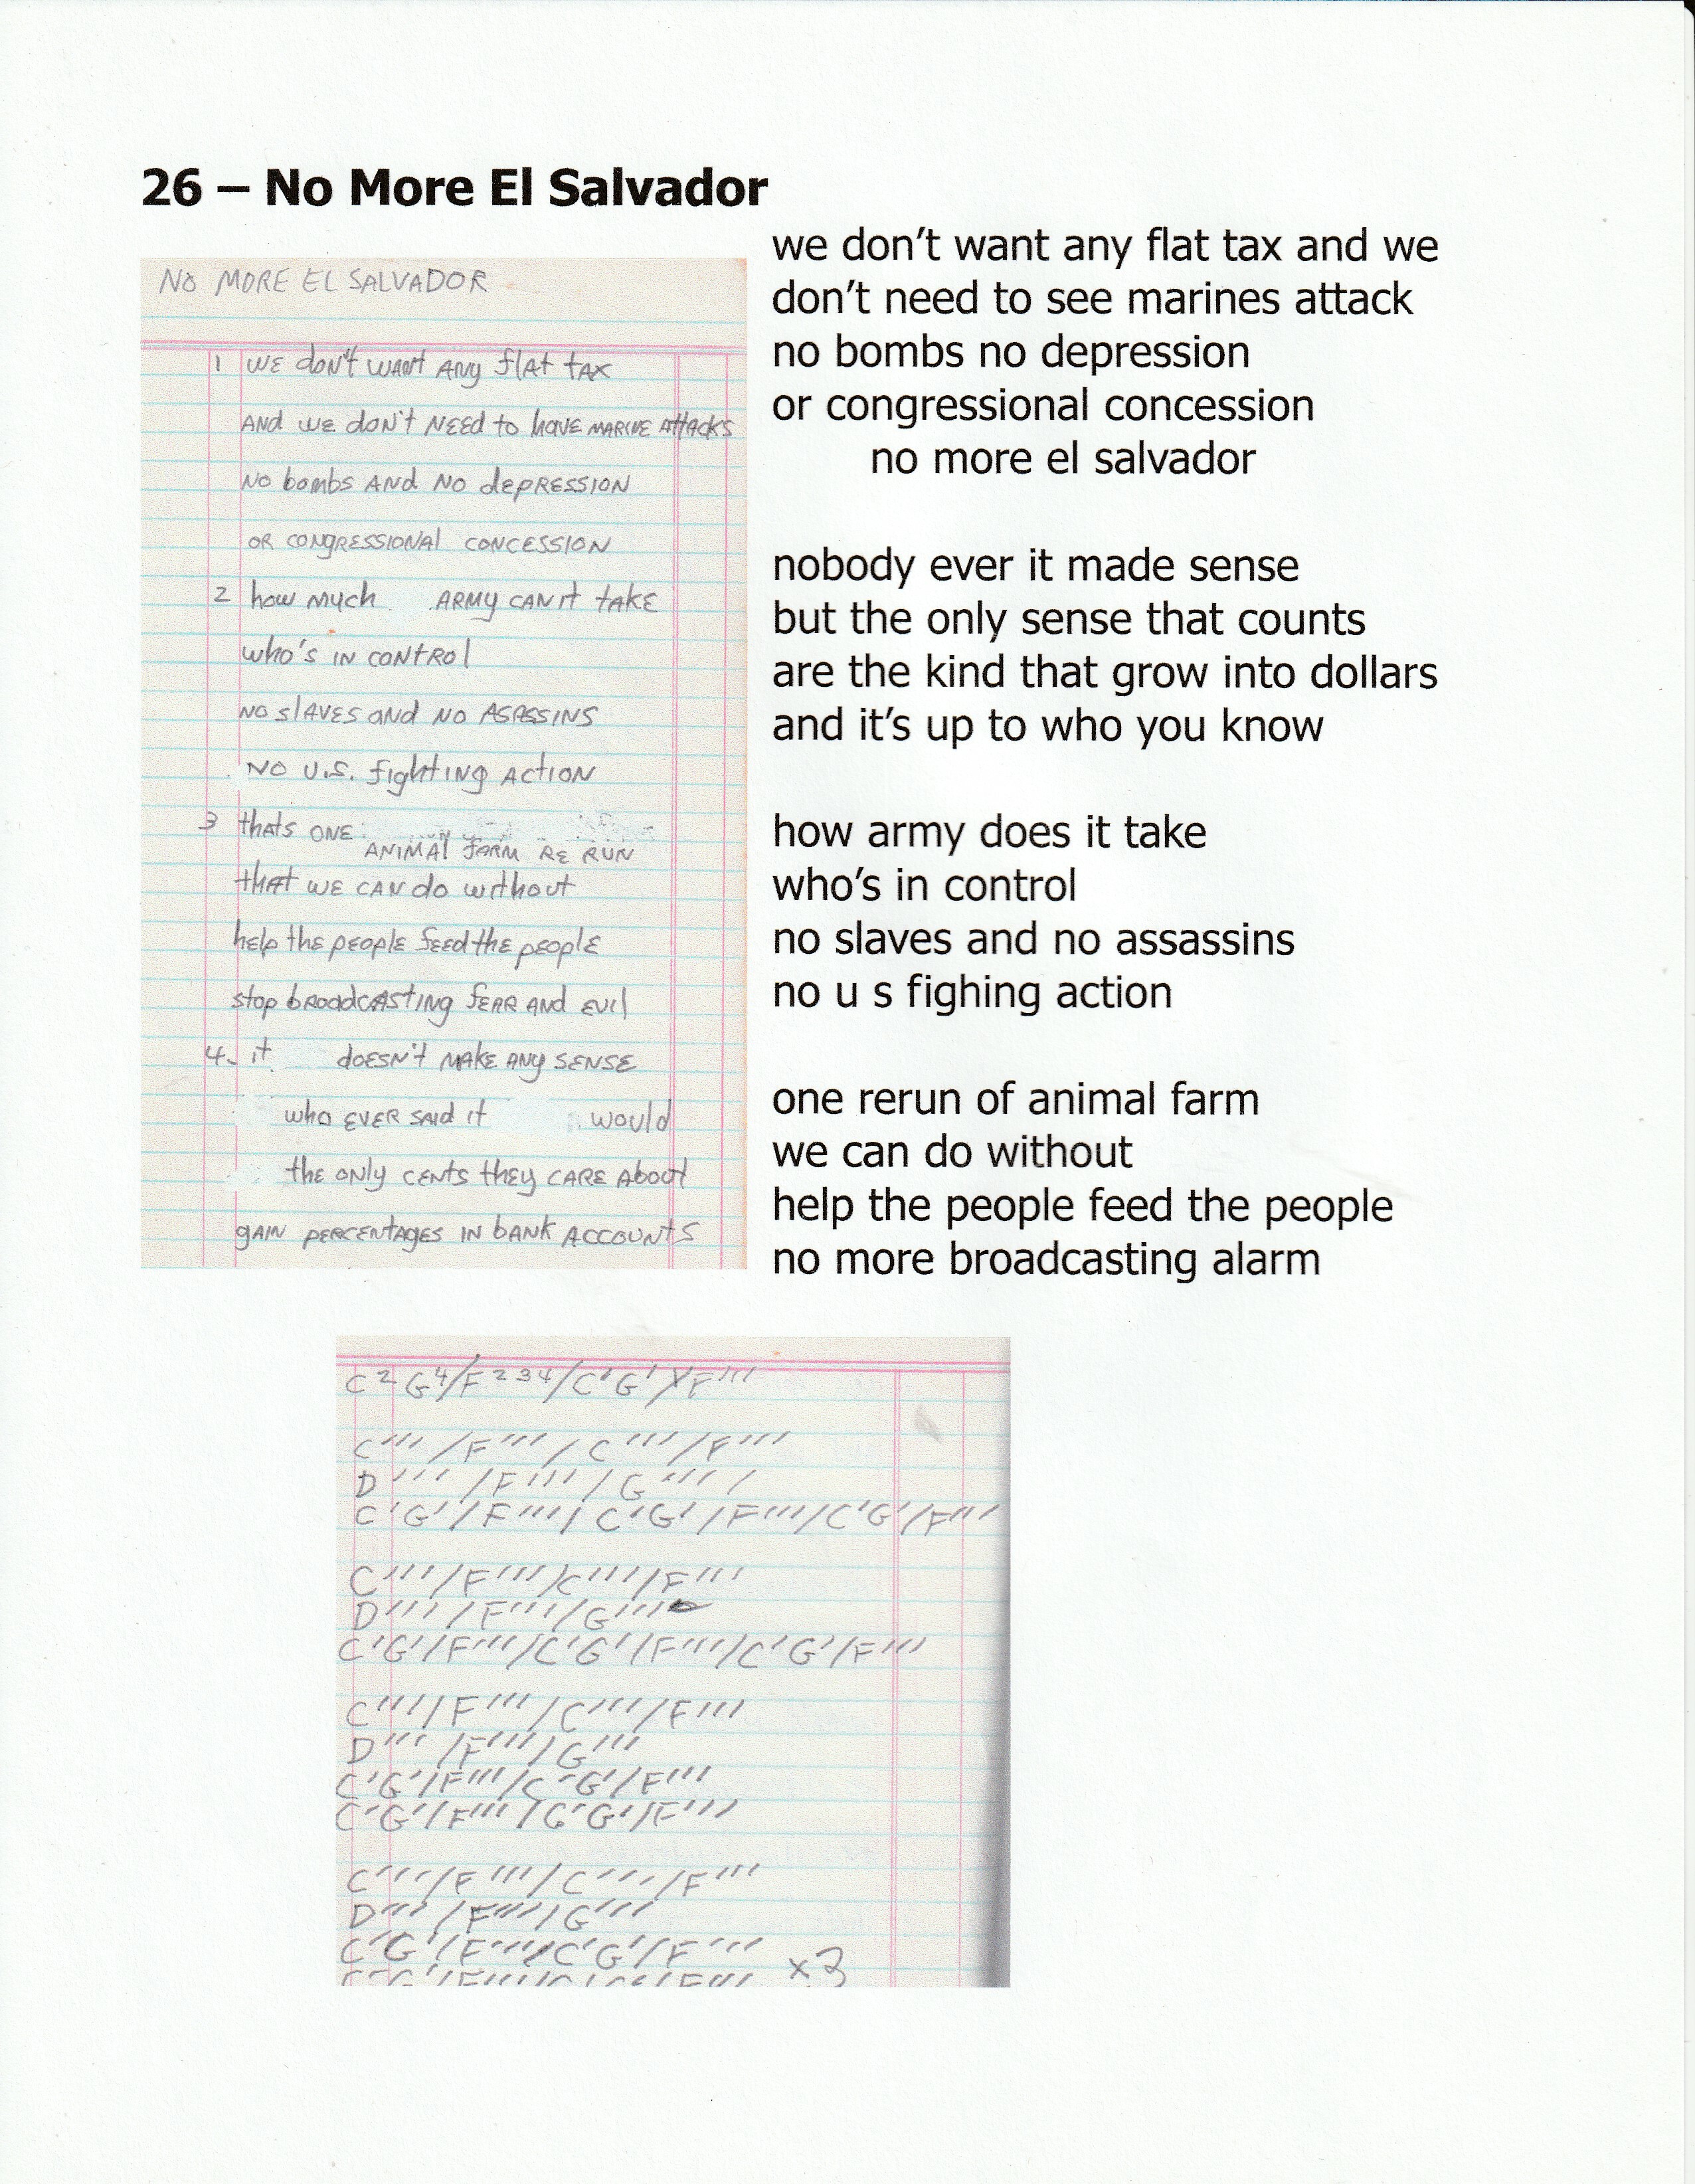 26 – No More El Salvador
NO MORE EL SALVADOR
1 WE don't WANT ANY flAt tAX
AND WE don't NEEd to hAVE MARINE AttACKS
NO bombs ANd NO dEPRESSION
OR CONGRESSIONAl CONCESSION
2 how Much ARMY CAN it tAKE
who's IN CONtROl
NO slAVES aNd NO ASASSINS
NO U.S. fighting ActION
3 thAts ONE
ANIMAl fARM RE RUN
thAt WE CAN do without
help thE pEOplE fEEd thE pEOplE
stop broadcAsting fEAR AND EVIl
4. it doESN't MAKE ANY SENSE
who EVER SAid it would
thE ONly CENts thEy CARE About
gAIN PERCENtAgES IN bANK ACCOUNtS
we don't want any flat tax and we
don't need to see marines attack
no bombs no depression
or congressional concession
no more el salvador
nobody ever it made sense
but the only sense that counts
are the kind that grow into dollars
and it's up to who you know
how army does it take
who's in control
no slaves and no assassins
no u s fighing action
one rerun of animal farm
we can do without
help the people feed the people
no more broadcasting alarm
C² G⁴/F²³⁴/C'G'/F'''
C'''/F'''/C'''/F'''
D'''/F'''/G'''/
C'G'/F'''/C'G'/F'''/C'G'/F'''
C'''/F'''/C'''/F'''
D'''/F'''/G'''
C'G'/F'''/C'G'/F'''/C'G'/F'''
C'''/F'''/C'''/F'''
D'''/F'''/G'''
C'G'/F'''/C'G'/F'''
C'G'/F'''/C'G'/F'''
C'''/F'''/C'''/F'''
D'''/F'''/G'''
C'G'/F'''/C'G'/F'''
x3